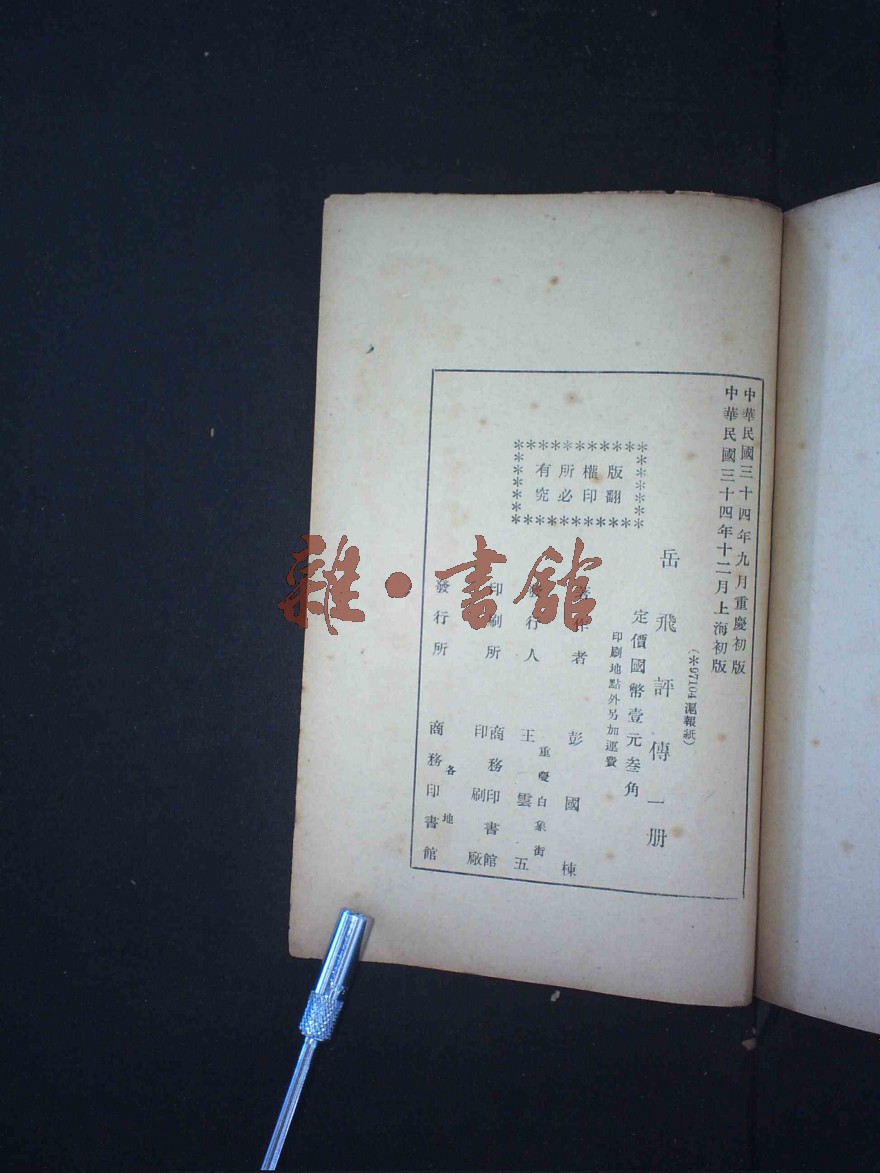 中華民國三十四年九月重慶初版
中華民國三十四年十二月上海初版
(※97104 滬報紙)
岳飛評傳一册
定價國幣壹元叁角
印刷地點外另加運費
版權所有
翻印必究
著作者 彭國棟
發行人 王雲五
重慶白象街
印刷所 商務印書館
印刷廠
發行所 各地
商務印書館
雜·書館